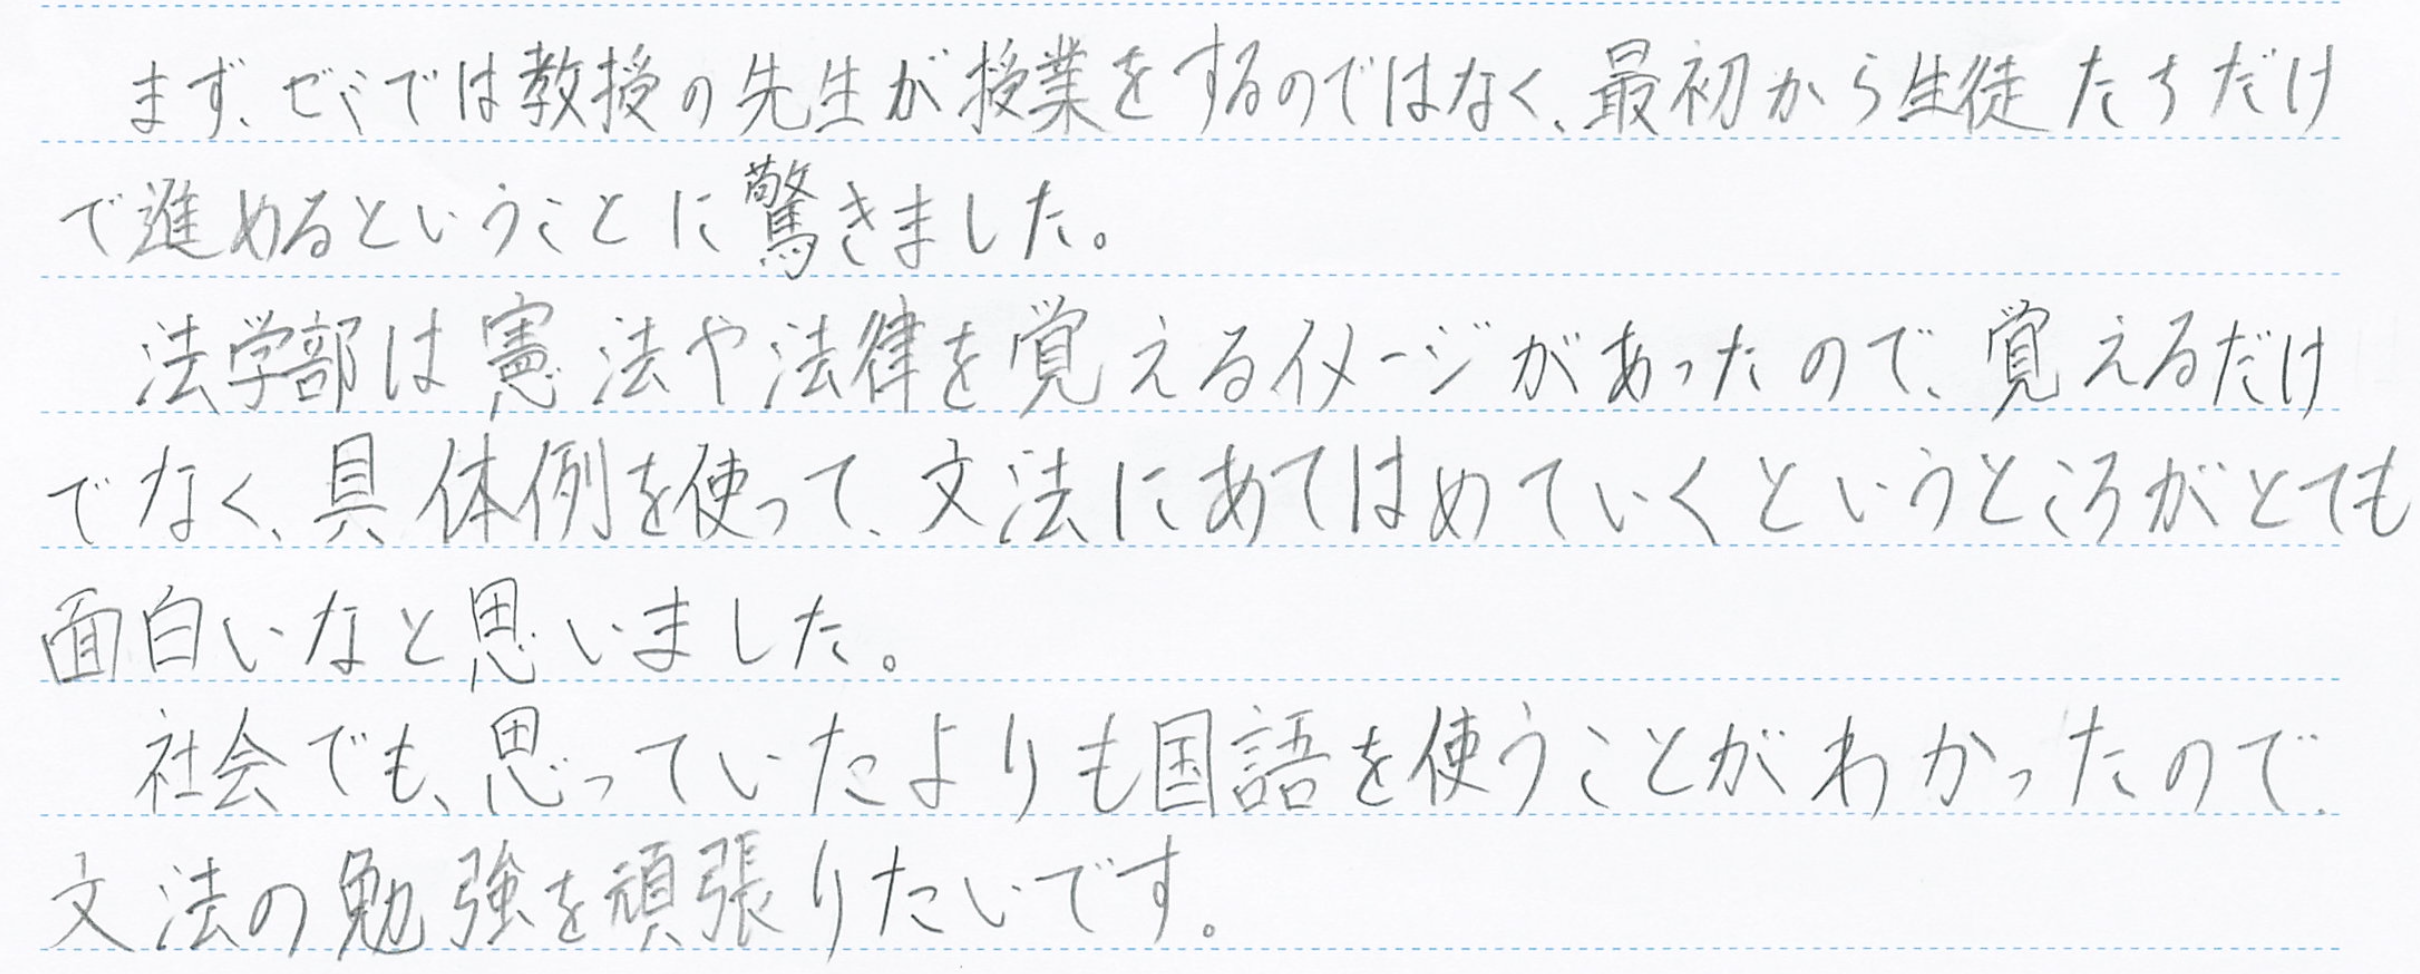 まず、ゼミでは教授の先生が授業をするのではなく、最初から生徒たちだけ
で進めるということに驚きました。
法学部は憲法や法律を覚えるイメージがあったので、覚えるだけ
でなく、具体例を使って、文法にあてはめていくというところがとても
面白いなと思いました。
社会でも、思っていたよりも国語を使うことがわかったので、
文法の勉強を頑張りたいです。